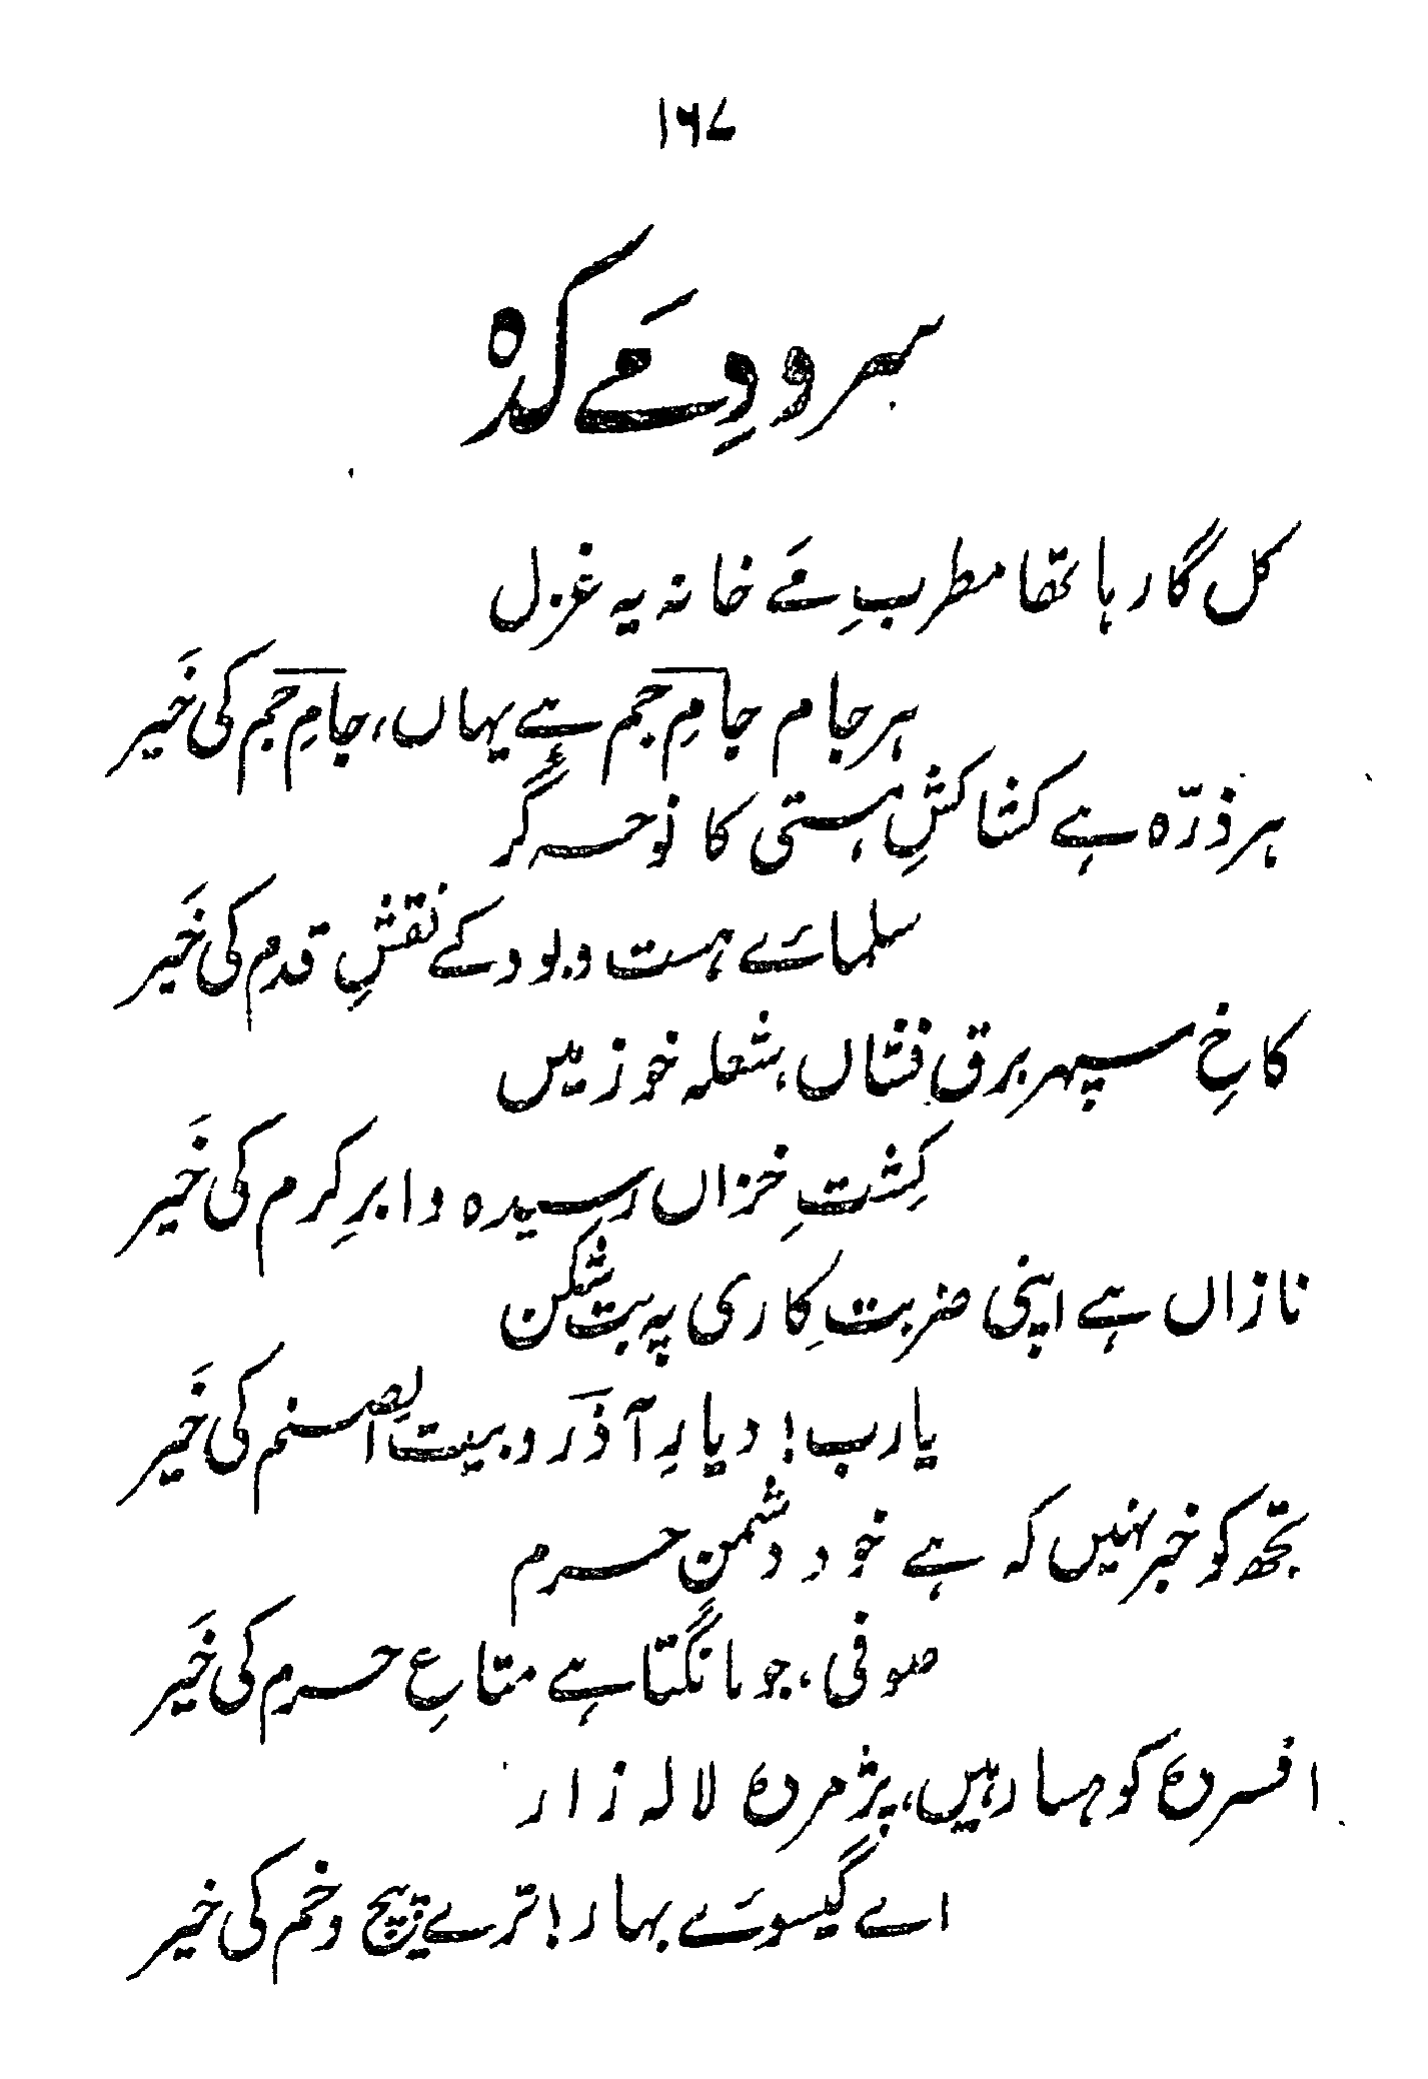 ۱۶۷
سرودِ مَے کدہ
کل گا رہا تھا مطربِ مَے خانہ یہ غزل
ہر جام جامِ جم ہے یہاں، جامِ جم کی خَیر
ہر ذرّہ ہے کشاکشِ ہستی کا نوحہ گر
سلمائے ہست و بود کے نقشِ قدم کی خَیر
کاخِ سپہر برق فشاں، شعلہ خو زمیں
کِشتِ خزاں رسیدہ و ابرِ کرم کی خَیر
نازاں ہے اپنی ضربتِ کاری پہ بت شکن
یارب! دیارِ آذَر و بیت الصنم کی خَیر
تجھ کو خبر نہیں کہ ہے خود دشمنِ حرم
صوفی، جو مانگتا ہے متاعِ حرم کی خَیر
افسردہ کوہسار ہیں، پژمردہ لالہ زار
اے گیسوئے بہار! ترے پیچ و خم کی خیر